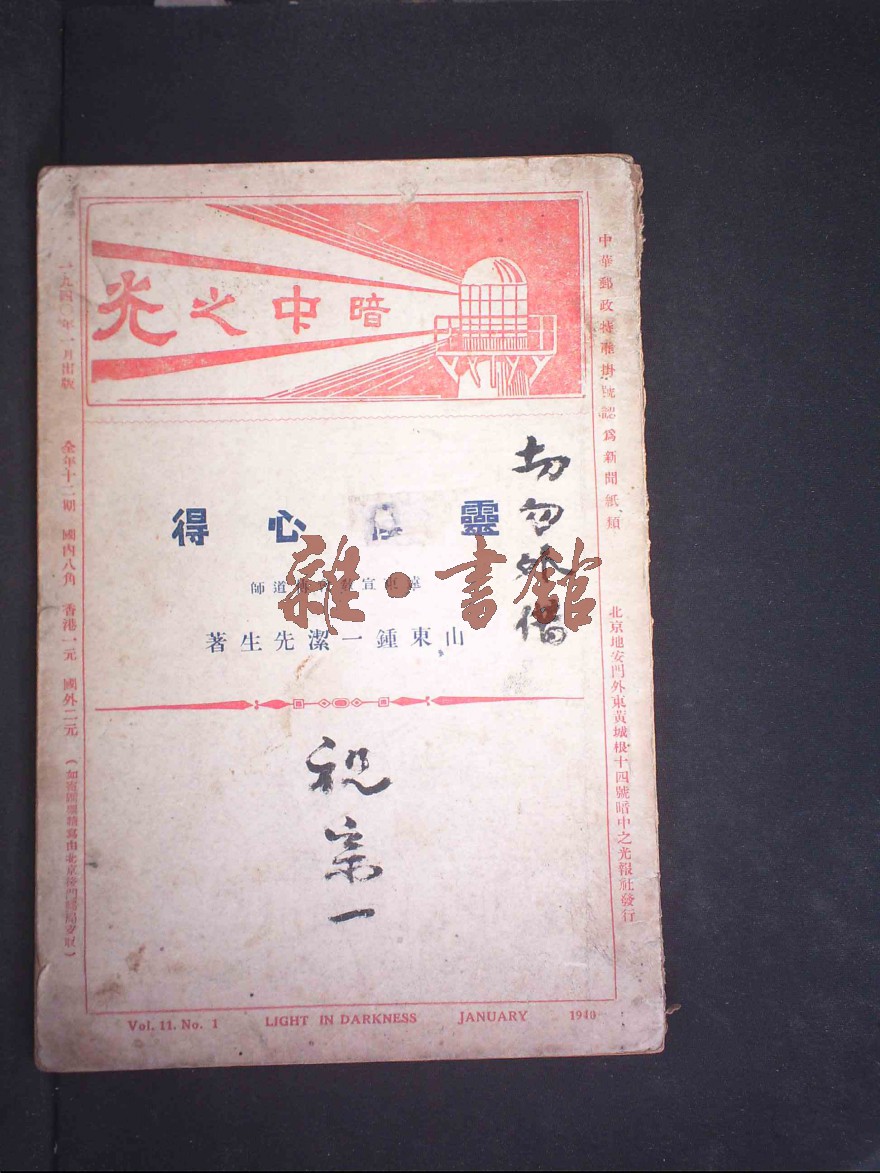 暗中之光
中華郵政特准掛號認為新聞紙類
北京地安門外東黃城根十四號暗中之光報社發行
切勿外借
靈 心得
宣 道師
山東鍾一潔先生著
雜·書館
祝宗一
一九四〇年一月出版 全年十二期 國內八角 香港一元 國外二元
Vol. 11. No. 1 LIGHT IN DARKNESS JANUARY 1940